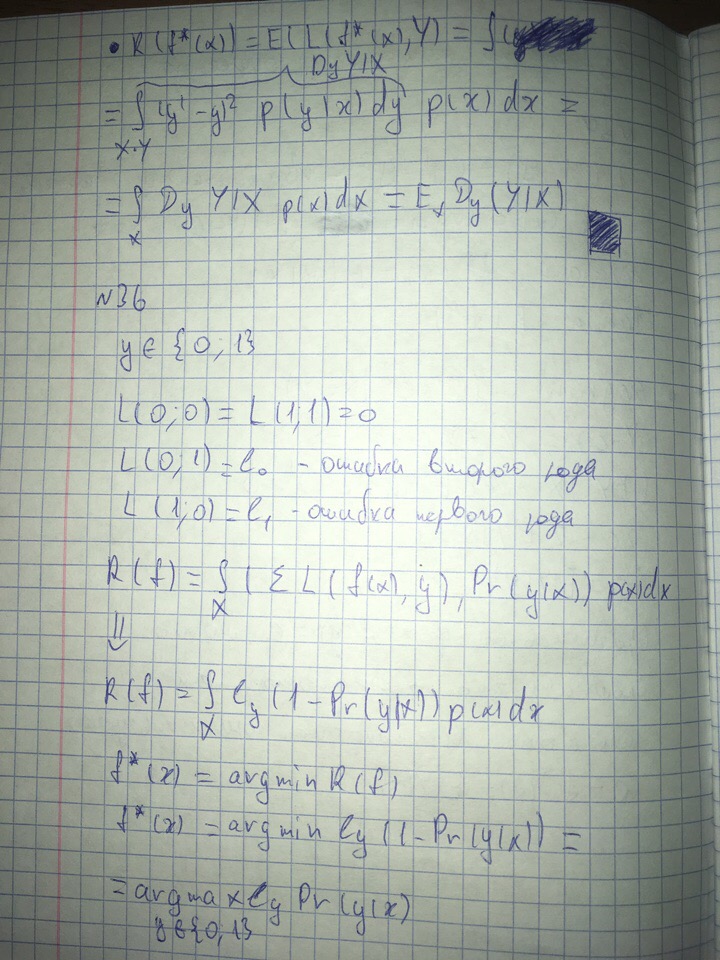 • R(f*(x)) = E(L(f*(x),Y) = ∫
Dy Y|X
= ∫ (y' - y)² p(y|x) dy p(x) dx =
X·Y
= ∫ Dy Y|X p(x)dx = Eₓ Dy(Y|X)
X
N36
y ∈ {0; 1}
L(0;0) = L(1;1) = 0
L(0;1) = l₀ - ошибка второго рода
L(1;0) = l₁ - ошибка первого рода
R(f) = ∫ (Σ L(f(x), y), Pr(y|x)) p(x)dx
X
⇓
R(f) = ∫ l_y (1 - Pr(y|x)) p(x) dx
X
f*(x) = argmin R(f)
f*(x) = argmin l_y (1 - Pr(y|x)) =
= argmax l_y Pr(y|x)
y∈{0,1}